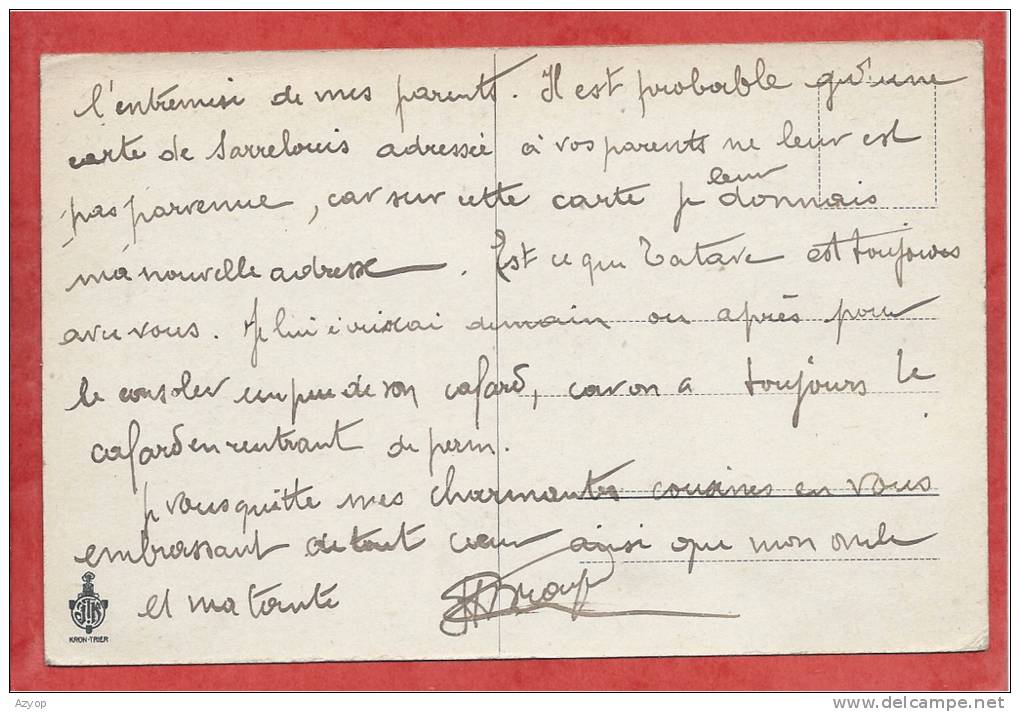 l'entremise de mes parents. Il est probable qu'une
carte de Sarrelouis adressée à vos parents ne leur est
pas parvenue, car sur cette carte je leur donnais
ma nouvelle adresse. Est ce que Tatave est toujours
avec vous. Je lui écrirai demain ou après pour
le consoler un peu de son cafard, car on a toujours le
cafard en rentrant de perm.
Je vous quitte mes charmantes cousines en vous
embrassant de tout cœur ainsi que mon oncle
et ma tante
KRON-TRIER
Azyop
www.delcampe.net